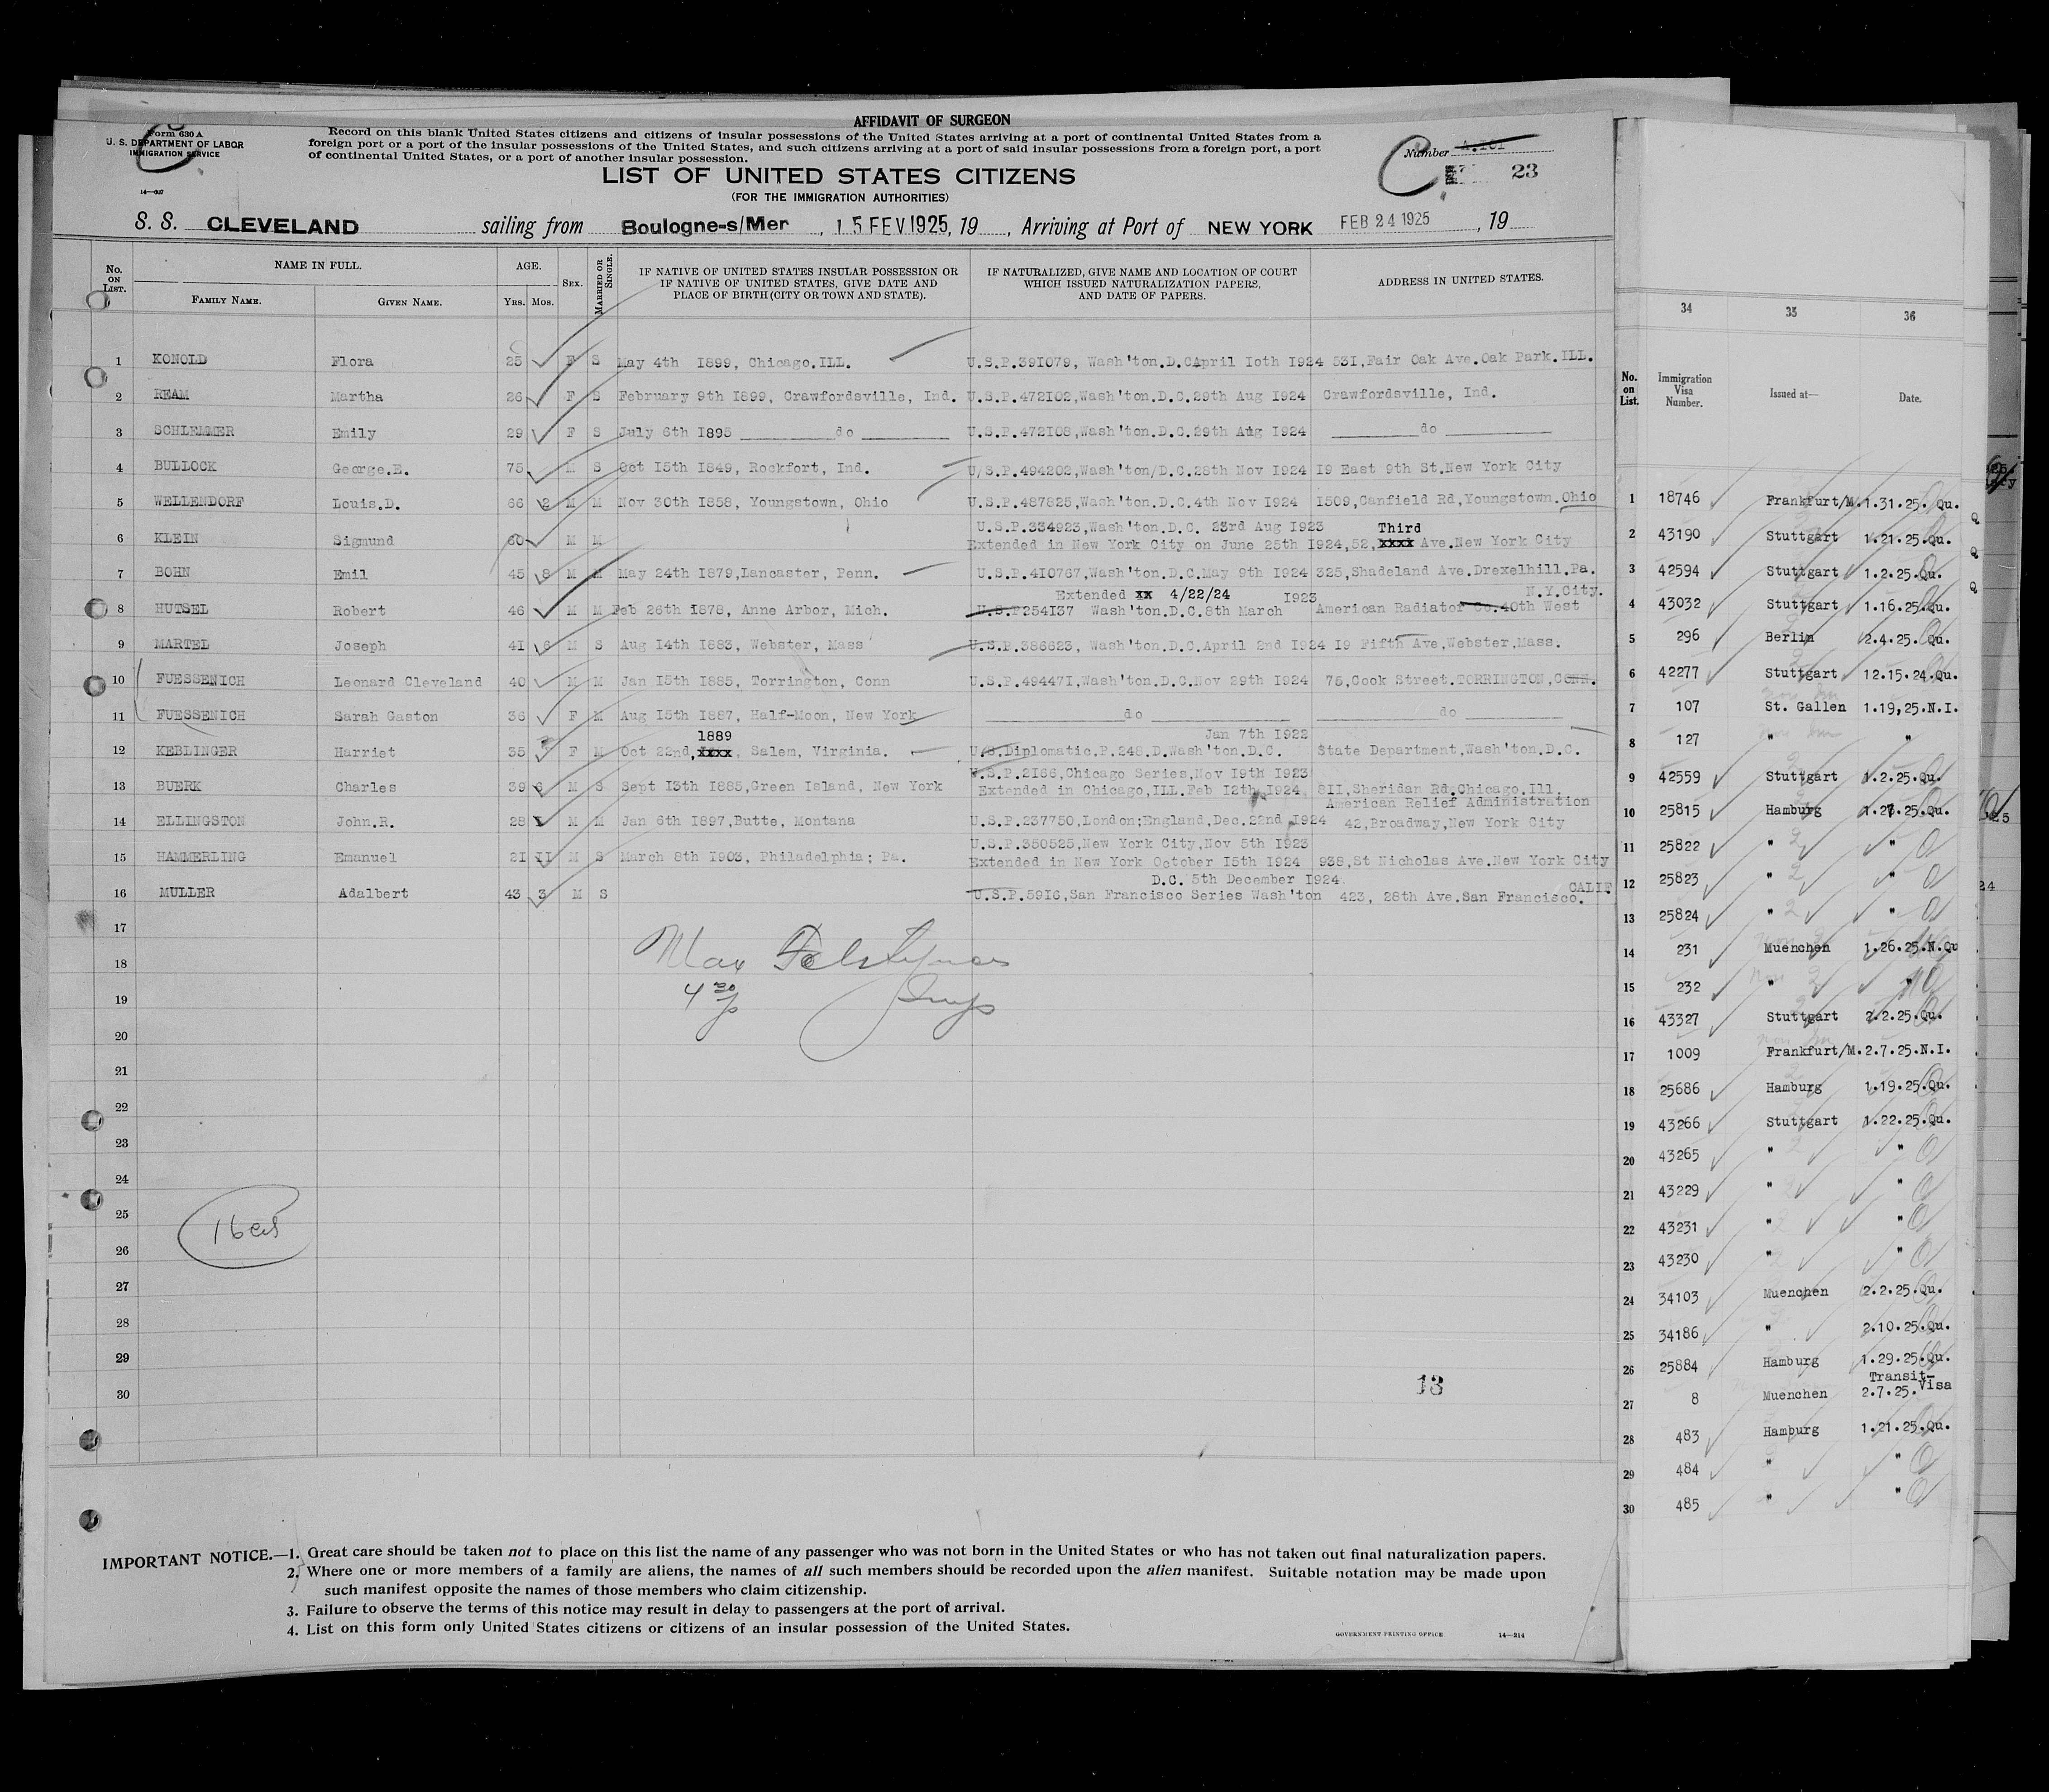 AFFIDAVIT OF SURGEON
Form 630 A
U. S. DEPARTMENT OF LABOR
IMMIGRATION SERVICE
Record on this blank United States citizens and citizens of insular possessions of the United States arriving at a port of continental United States from a
foreign port or a port of the insular possessions of the United States, and such citizens arriving at a port of said insular possessions from a foreign port, a port
of continental United States, or a port of another insular possession.
Number
23
LIST OF UNITED STATES CITIZENS
(FOR THE IMMIGRATION AUTHORITIES)
S. S. CLEVELAND sailing from Boulogne-s/Mer , 15 FEV 1925, 19 , Arriving at Port of NEW YORK FEB 24 1925 , 19
No. ON LIST. NAME IN FULL. FAMILY NAME. GIVEN NAME. AGE. YRS. MOS. SEX. MARRIED OR SINGLE. IF NATIVE OF UNITED STATES INSULAR POSSESSION OR IF NATIVE OF UNITED STATES, GIVE DATE AND PLACE OF BIRTH (CITY OR TOWN AND STATE). IF NATURALIZED, GIVE NAME AND LOCATION OF COURT WHICH ISSUED NATURALIZATION PAPERS, AND DATE OF PAPERS. ADDRESS IN UNITED STATES.
1 KONOLD Flora 25 F S May 4th I899, Chicago.ILL. U.S.P.39I079, Wash'ton.D.CApril Ioth I924 53I,Fair Oak Ave.Oak Park.ILL.
2 REAM Martha 26 F S February 9th I899, Crawfordsville, Ind. U.S.P.472I02,Wash'ton.D.C.29th Aug I924 Crawfordsville, Ind.
3 SCHLEMMER Emily 29 F S July 6th I895 do U.S.P.472I08,Wash'ton.D.C.29th Aug I924 do
4 BULLOCK George.E. 75 M S Oct I5th I849, Rockfort, Ind. U/S.P.494202,Wash'ton/D.C.28th Nov I924 I9 East 9th St.New York City
5 WELLENDORF Louis.D. 66 2 M M Nov 30th I858, Youngstown, Ohio U.S.P.487825,Wash'ton.D.C.4th Nov I924 I509,Canfield Rd,Youngstown.Ohio
U.S.P.334923,Wash'ton.D.C. 23rd Aug I923 Third
6 KLEIN Sigmund 60 M M Extended in New York City on June 25th I924,52,xxxx Ave.New York City
7 BOHN Emil 45 8 M M May 24th I879,Lancaster, Penn. U.S.P.4I0767,Wash'ton.D.C.May 9th I924 325,Shadeland Ave.Drexelhill.Pa.
Extended xx 4/22/24 I923 N.Y.City.
8 HUTSEL Robert 46 M M Feb 26th I878, Anne Arbor, Mich. U.S.P254I37 Wash'ton.D.C.8th March American Radiator Co.40th West
9 MARTEL Joseph 4I 6 M S Aug I4th I883, Webster, Mass U.S.P.386623, Wash'ton.D.C.April 2nd I924 I9 Fifth Ave,Webster,Mass.
10 FUESSENICH Leonard Cleveland 40 M M Jan I5th I885, Torrington, Conn U.S.P.49447I,Wash'ton.D.C.Nov 29th I924 75,Cook Street.TORRINGTON,CONN.
11 FUESSENICH Sarah Gaston 36 F M Aug I5th I887, Half-Moon, New York do do
1889 Jan 7th I922
12 KEBLINGER Harriet 35 F M Oct 22nd,xxxx, Salem, Virginia. U/S.Diplomatic.P.248.D.Wash'ton.D.C. State Department,Wash'ton.D.C.
U.S.P.2I66,Chicago Series,Nov I9th I923
13 BUERK Charles 39 6 M S Sept I3th I885,Green Island, New York Extended in Chicago,ILL.Feb I2th I924 8II,Sheridan Rd.Chicago.Ill.
American Relief Administration
14 ELLINGSTON John.R. 28 I M M Jan 6th I897,Butte, Montana U.S.P.237750,London;England,Dec.22nd I924 42,Broadway,New York City
U.S.P.350525,New York City,Nov 5th I923
15 HAMMERLING Emanuel 2I II M S March 8th I903, Philadelphia; Pa. Extended in New York October I5th I924 938,St Nicholas Ave.New York City
D.C. 5th December I924 CALIF
16 MULLER Adalbert 43 3 M S U.S.P.59I6,San Francisco Series Wash'ton 423, 28th Ave.San Francisco.
17
18 Max
19 4 30 p
20
21
22
23
24
25
26
16
27
28
29
30
13
IMPORTANT NOTICE.—1. Great care should be taken not to place on this list the name of any passenger who was not born in the United States or who has not taken out final naturalization papers.
2. Where one or more members of a family are aliens, the names of all such members should be recorded upon the alien manifest. Suitable notation may be made upon
such manifest opposite the names of those members who claim citizenship.
3. Failure to observe the terms of this notice may result in delay to passengers at the port of arrival.
4. List on this form only United States citizens or citizens of an insular possession of the United States.
GOVERNMENT PRINTING OFFICE 14—214
34 35 36
No. on List. Immigration Visa Number. Issued at— Date.
1 18746 Frankfurt/M. 1.31.25. Qu.
2 43190 Stuttgart 1.21.25.Qu.
3 42594 Stuttgart 1.2.25.Qu.
4 43032 Stuttgart 1.16.25.Qu.
5 296 Berlin 2.4.25. Qu.
6 42277 Stuttgart 12.15.24.Qu.
7 107 St. Gallen 1.19,25.N.I.
8 127 " "
9 42559 Stuttgart 1.2.25.Qu.
10 25815 Hamburg 1.27.25.Qu.
11 25822 " "
12 25823 " "
13 25824 " "
14 231 Muenchen 1.26.25.N.Qu
15 232 " "
16 43327 Stuttgart 2.2.25.Qu.
17 1009 Frankfurt/M. 2.7.25.N.I.
18 25686 Hamburg 1.19.25.Qu.
19 43266 Stuttgart 1.22.25.Qu.
20 43265 " "
21 43229 " "
22 43231 " "
23 43230 " "
24 34103 Muenchen 2.2.25.Qu.
25 34186 " 2.10.25.Qu.
26 25884 Hamburg 1.29.25.Qu.
27 8 Muenchen 2.7.25. Transit-Visa
28 483 Hamburg 1.21.25.Qu.
29 484 " "
30 485 " "